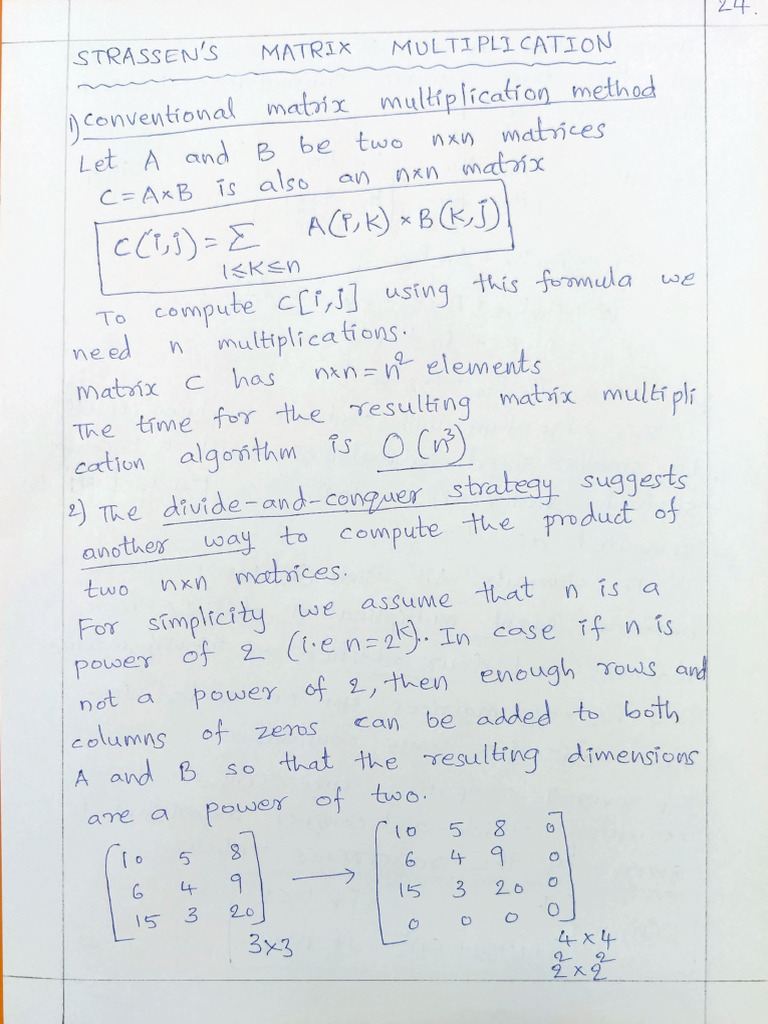 24.
STRASSEN'S MATRIX MULTIPLICATION
1) conventional matrix multiplication method
Let A and B be two n×n matrices
C = A×B is also an n×n matrix
C(i,j) = Σ A(i,k) × B(k,j)
1≤k≤n
To compute C[i,j] using this formula we
need n multiplications.
matrix C has n×n = n² elements
The time for the resulting matrix multipli
cation algorithm is O(n³)
2) The divide-and-conquer strategy suggests
another way to compute the product of
two n×n matrices.
For simplicity we assume that n is a
power of 2 (i.e n=2^k). In case if n is
not a power of 2, then enough rows and
columns of zeros can be added to both
A and B so that the resulting dimensions
are a power of two.
[10 5 8] [10 5 8 0]
[6 4 9] → [6 4 9 0]
[15 3 20] [15 3 20 0]
[0 0 0 0]
3×3 4×4
2² × 2²